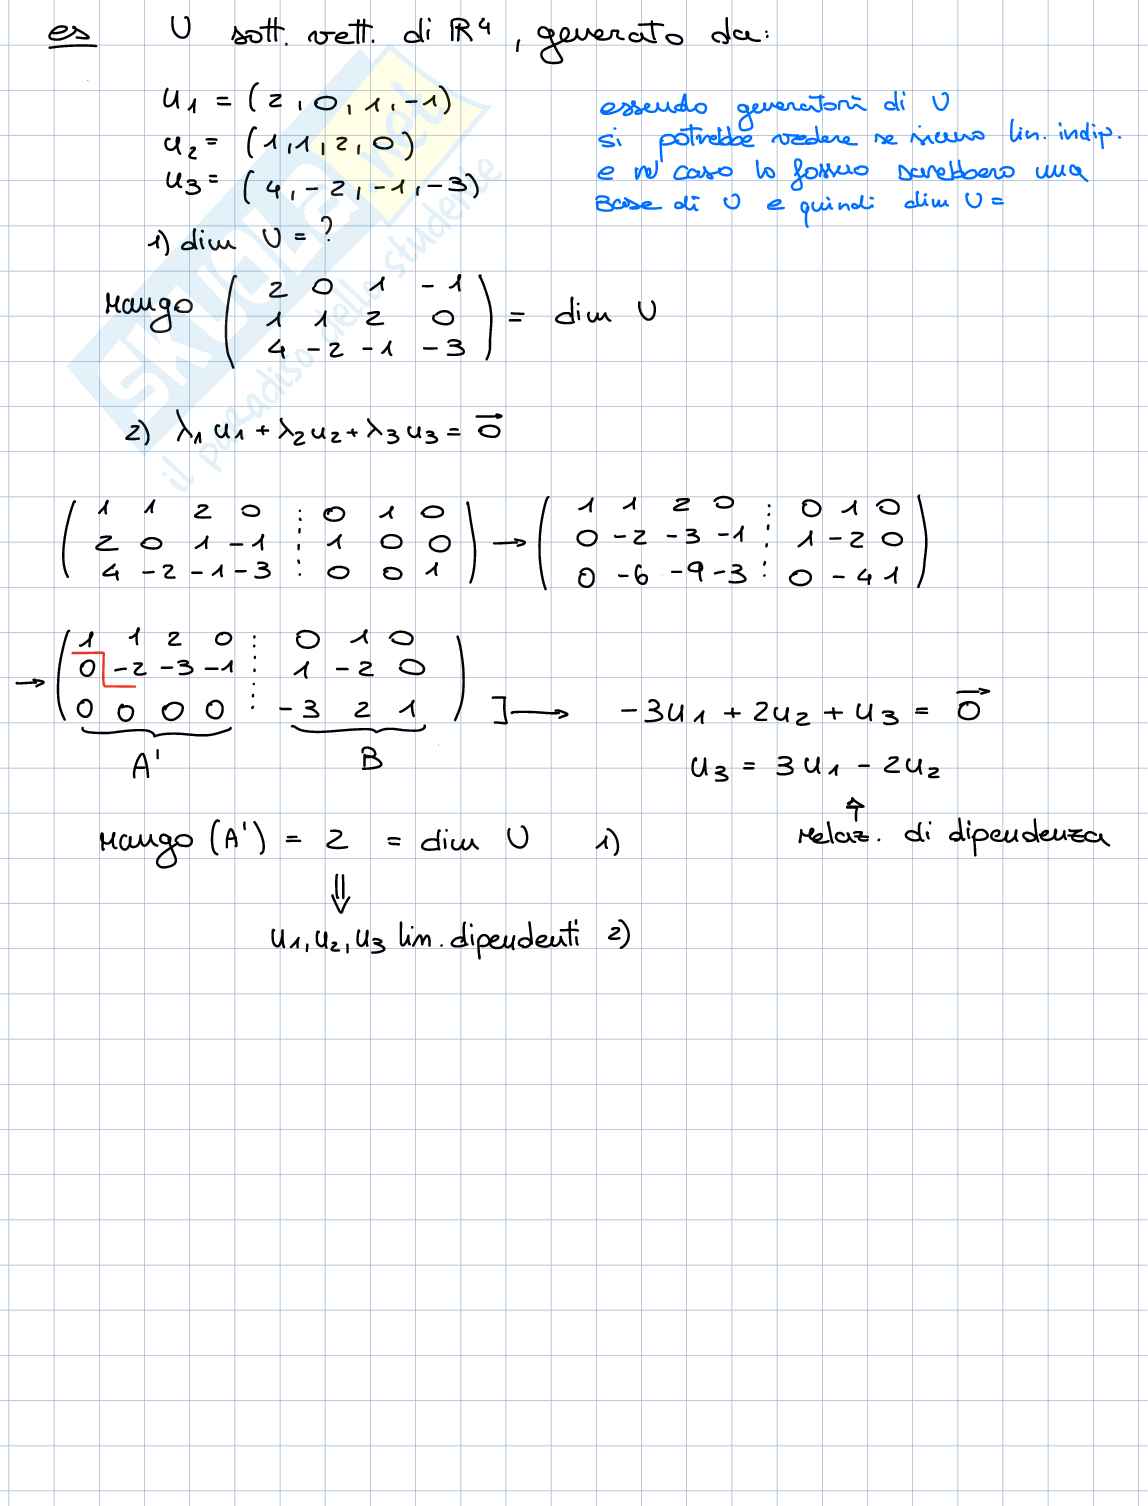 es U sott. vett. di ℝ⁴, generato da:
u₁ = (2, 0, 1, -1)
u₂ = (1, 1, 2, 0)
u₃ = (4, -2, -1, -3)
essendo generatori di U
si potrebbe vedere se siano lin. indip.
e nel caso lo fossero sarebbero una
Base di U e quindi dim U =
1) dim U = ?
Rango ( 2 0 1 -1
1 1 2 0
4 -2 -1 -3 ) = dim U
2) λ₁u₁ + λ₂u₂ + λ₃u₃ = 0⃗
( 1 1 2 0 ⋮ 0 1 0
2 0 1 -1 ⋮ 1 0 0
4 -2 -1 -3 ⋮ 0 0 1 )
→ ( 1 1 2 0 ⋮ 0 1 0
0 -2 -3 -1 ⋮ 1 -2 0
0 -6 -9 -3 ⋮ 0 -4 1 )
→ ( 1 1 2 0 ⋮ 0 1 0
0 -2 -3 -1 ⋮ 1 -2 0
0 0 0 0 ⋮ -3 2 1 ) ] → -3u₁ + 2u₂ + u₃ = 0⃗
A' B
u₃ = 3u₁ - 2u₂
↑
relaz. di dipendenza
Rango (A') = 2 = dim U 1)
⇓
u₁, u₂, u₃ lin. dipendenti 2)
SKUOLA.net
il paradiso dello studente